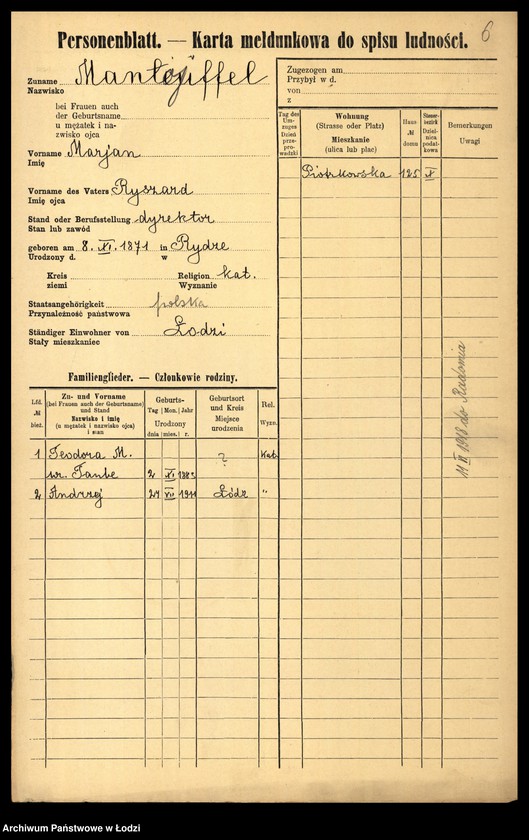 6
Personenblatt. — Karta meldunkowa do spisu ludności.
Zuname Manteuffel
Nazwisko
bei Frauen auch
der Geburtsname
u mężatek i na-
zwisko ojca
Vorname Marjan
Imię
Vorname des Vaters Ryszard
Imię ojca
Stand oder Berufsstellung dyrektor
Stan lub zawód
geboren am 8. XI. 1871 in Rydze
Urodzony d. w
Kreis Religion kat.
ziemi Wyznanie
Staatsangehörigkeit polska
Przynależność państwowa
Ständiger Einwohner von Łodzi
Stały mieszkaniec
Familienglieder. — Członkowie rodziny.
Lfd.
№
bież.
Zu- und Vorname
(bei Frauen auch der Geburtsname)
und Stand
Nazwisko i imię
(u mężatek i nazwisko ojca)
i stan
Geburts-
Tag Mon. Jahr
Urodzony
dnia mies. r.
Geburtsort
und Kreis
Miejsce
urodzenia
Rel.
Wyzn.
1 Teodora M. ? kat.
ur. Taube 2 XI
2 Andrzej VII 1911 Łódź "
Zugezogen am
Przybył w d.
von
z
Tag des
Um-
zuges
Dzień
prze-
prowadzki
Wohnung
(Strasse oder Platz)
Mieszkanie
(ulica lub plac)
Haus
№
domu
Steuer-
bezirk
Dziel-
nica
podat-
kowa
Bemerkungen
Uwagi
Piotrkowska 125 X
11 1918 do Radomia
Archiwum Państwowe w Łodzi